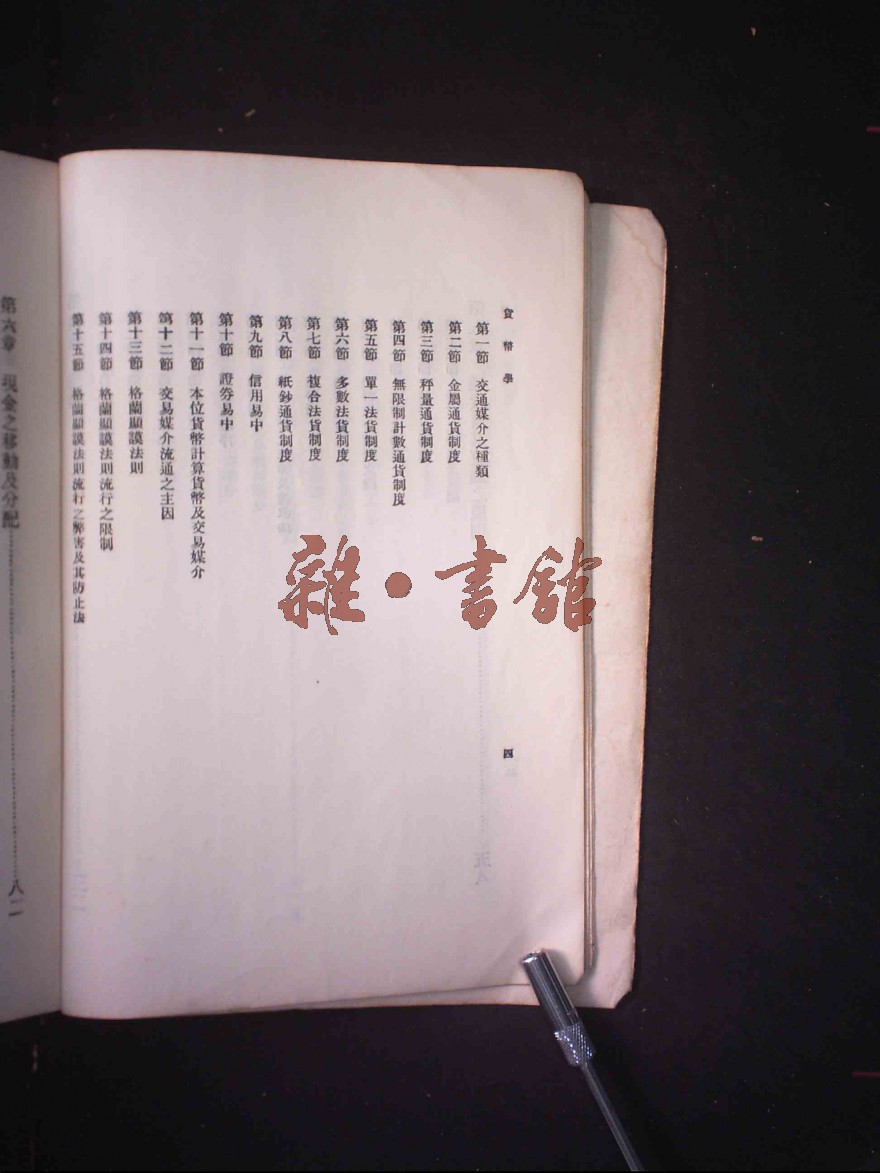 貨幣學
四
第一節 交通媒介之種類
第二節 金屬通貨制度
第三節 秤量通貨制度
第四節 無限制計數通貨制度
第五節 單一法貨制度
第六節 多數法貨制度
第七節 複合法貨制度
第八節 紙鈔通貨制度
第九節 信用易中
第十節 證券易中
第十一節 本位貨幣計算貨幣及交易媒介
第十二節 交易媒介流通之主因
第十三節 格蘭顯謨法則
第十四節 格蘭顯謨法則流行之限制
第十五節 格蘭顯謨法則流行之弊害及其防止法
第六章 現金之移動及分配
八二
雜·書館